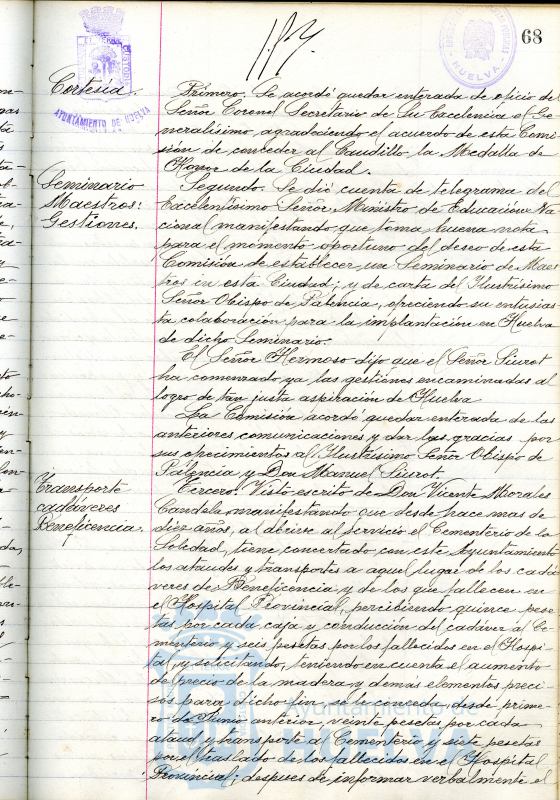 68
AYUNTAMIENTO DE HUELVA
HUELVA
Cortesía.
Primero. Se acordó quedar enterada de oficio del
Señor Coronel Secretario de Su Excelencia el Ge-
neralísimo agradeciendo el acuerdo de esta Comi-
sión de conceder al Caudillo la Medalla de
Honor de la Ciudad.
Seminario
Maestros:
Gestiones.
Segundo. Se dió cuenta de telegrama del
Excelentísimo Señor Ministro de Educación Na-
cional manifestando que toma buena nota
para el momento oportuno del deseo de esta
Comisión de establecer un Seminario de Maes-
tros en esta Ciudad; y de carta del Ilustrísimo
Señor Obispo de Palencia, ofreciendo su entusias-
ta colaboración para la implantación en Huelva
de dicho Seminario.
El Señor Hermoso dijo que el Señor Siurot
ha comenzado ya las gestiones encaminadas al
logro de tan justa aspiración de Huelva
La Comisión acordó quedar enterada de las
anteriores comunicaciones y dar las gracias por
sus ofrecimientos al Ilustrísimo Señor Obispo de
Palencia y Don Manuel Siurot.
Transporte
cadáveres
Beneficencia.
Tercero. Visto escrito de Don Vicente Morales
Candela manifestando que desde hace mas de
diez años, al abrirse al servicio el Cementerio de la
Soledad, tiene concertado con este Ayuntamiento
los ataudes y transportes a aquel lugar de los cadá-
veres de Beneficencia y de los que fallecen en
el Hospital Provincial, percibiendo quince pese-
tas por cada caja y conducción del cadáver al Ce-
menterio y seis pesetas por los fallecidos en el Hospi-
tal, y solicitando, teniendo en cuenta el aumento
de precio de la madera y demás elementos preci-
sos para dicho fin, se le conceda desde prime-
ro de Junio anterior, veinte pesetas por cada
ataud y transporte al Cementerio y siete pesetas
por el traslado de los fallecidos en el Hospital
Provincial; despues de informar verbalmente el
Ayuntamiento de
HUELVA